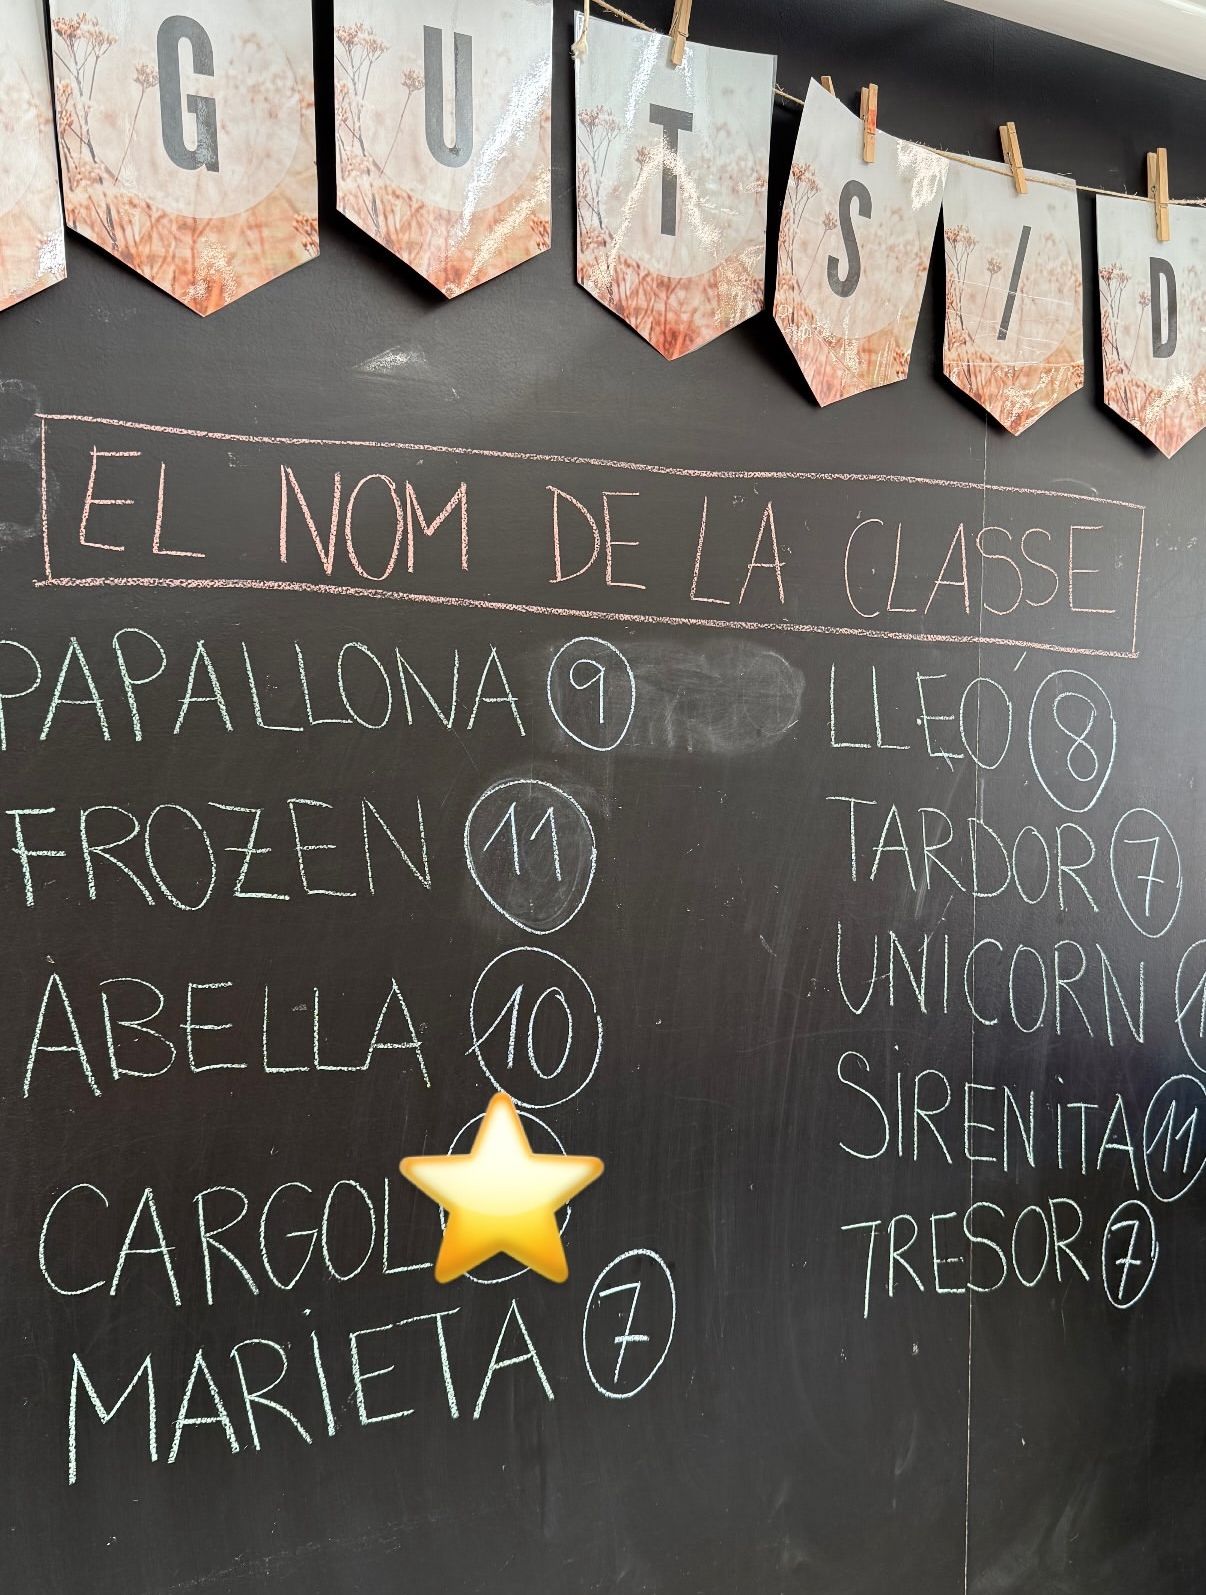 GUTS/D
EL NOM DE LA CLASSE
PAPALLONA 9
FROZEN 11
ÀBELLA 10
CARGOL
MARIETA 7
LLEÓ 8
TARDOR 7
UNICORN
SIRENITA 11
TRESOR 7